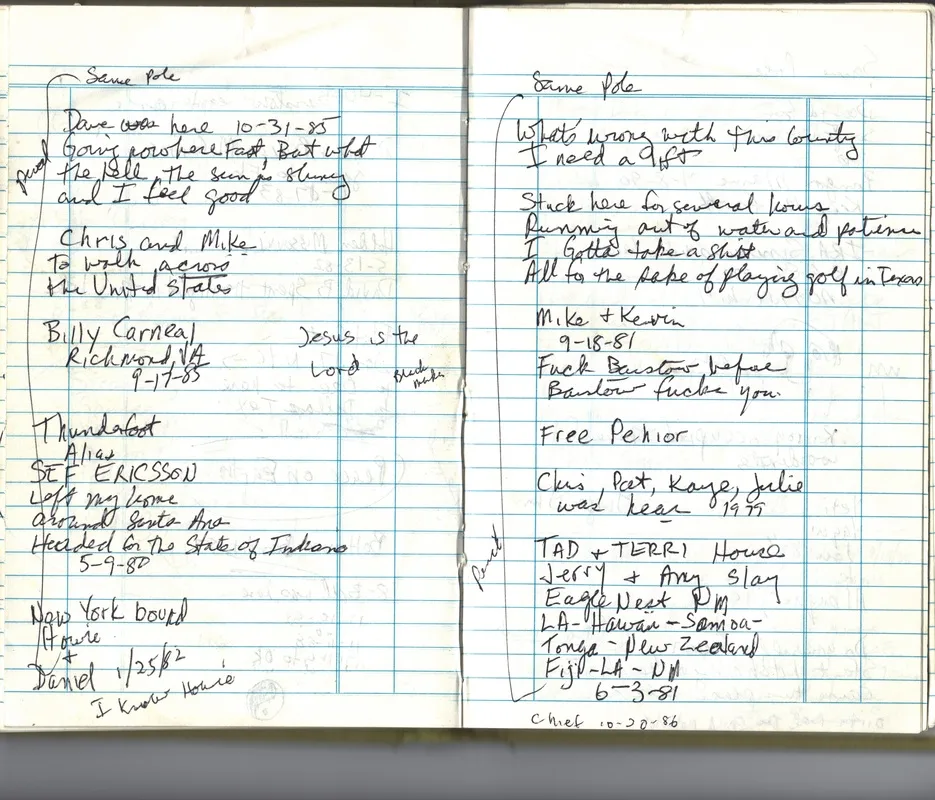 Same Pole
Dave was here 10-31-85
Going nowhere Fast, But what
the hell, the sun is shining
and I feel good
pencil
Chris and Mike
to walk across
the United States
Billy Carneal
Richmond, VA
9-17-85
Jesus is the
Lord
Black
marker
Thunderfoot
Alias
SEF ERICSSON
Left my home
around Santa Ana
Headed for the State of Indiana
5-9-80
New York bound
Howie
+
Daniel 1/25/82
I Know Howie
Same Pole
What's wrong with this County
I need a lift
Stuck here for several hours
Running out of water and patience
I Gotta take a shit
All for the sake of playing golf in Texas
Mike + Kevin
9-18-81
Fuck Barstow before
Barstow fucks you.
Free Pehior
Chis, Pat, Kaye, Julie
was hear 1979
pencil
TAD + TERRI House
Jerry + Amy Slay
Eagle Nest NM
LA-Hawaii-Samoa-
Tonga-New Zealand
Fiji-LA-NM
6-3-81
Chief 10-20-86